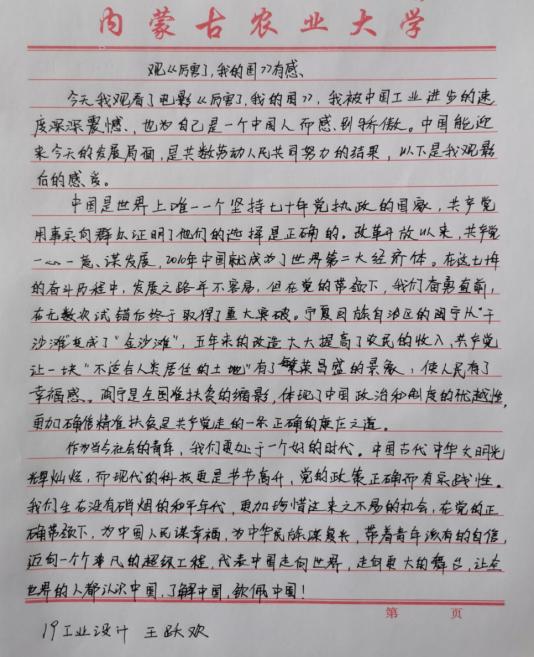 内蒙古农业大学
观《厉害了,我的国》有感、
今天我观看了电影《厉害了,我的国》,我被中国工业进步的速
度深深震憾、也为自己是一个中国人而感到骄傲。中国能迎
来今天的发展局面,是共数劳动人民共同努力的结果,以下是我观影
后的感受。
中国是世界上唯一一个坚持七十年党执政的国家,共产党
用事实向群众证明了他们的选择是正确的。改革开放以来,共产党
一心一意、谋发展,2010年中国就成为了世界第二大经济体。在这七十年
的奋斗历程中,发展之路并不容易,但在党的带领下,我们奋勇直前,
在无数次试错后终于取得了重大突破。宁夏回族自治区的闽宁从“干
沙滩”变成了“金沙滩”,五年来的改造大大提高了农民的收入,共产党
让一块“不适合人类居住的土地”有了繁荣昌盛的景象,使人民有了
幸福感。闽宁是全国准扶贫的缩影,体现了中国政治和制度的优越性,
更加确信精准扶贫是共产党走的一条正确的康庄大道。
作为当今社会的青年,我们更处于一个好的时代。中国古代中华文明光
辉灿烂,而现代的科技更是节节高升,党的政策正确而有实践性。
我们生在没有硝烟的和平年代,更加珍惜这来之不易的机会,在党的正
确带领下,为中国人民谋幸福,为中华民族谋复兴,带着青年该有的自信,
迈向一个个非凡的超级工程,代表中国走向世界,走向更大的舞台,让全
世界的人都认识中国,了解中国,钦佩中国!
第 页
19工业设计 王跃欢